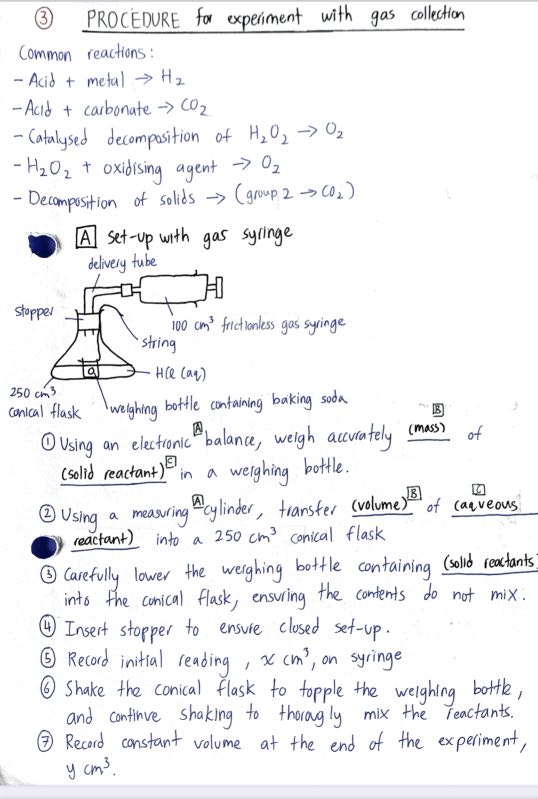 ③ PROCEDURE for experiment with gas collection
Common reactions:
- Acid + metal → H₂
- Acid + carbonate → CO₂
- Catalysed decomposition of H₂O₂ → O₂
- H₂O₂ + oxidising agent → O₂
- Decomposition of solids → (group 2 → CO₂)
A set-up with gas syringe
delivery tube
stopper
100 cm³ frictionless gas syringe
string
HCl (aq)
250 cm³
conical flask
weighing bottle containing baking soda
① Using an electronic A balance, weigh accurately (mass) B of
(solid reactant) C in a weighing bottle.
② Using a measuring A cylinder, transfer (volume) B of (aqueous C
reactant) into a 250 cm³ conical flask
③ Carefully lower the weighing bottle containing (solid reactants)
into the conical flask, ensuring the contents do not mix.
④ Insert stopper to ensure closed set-up.
⑤ Record initial reading, x cm³, on syringe
⑥ Shake the conical flask to topple the weighing bottle,
and continue shaking to thorougly mix the reactants.
⑦ Record constant volume at the end of the experiment,
y cm³.